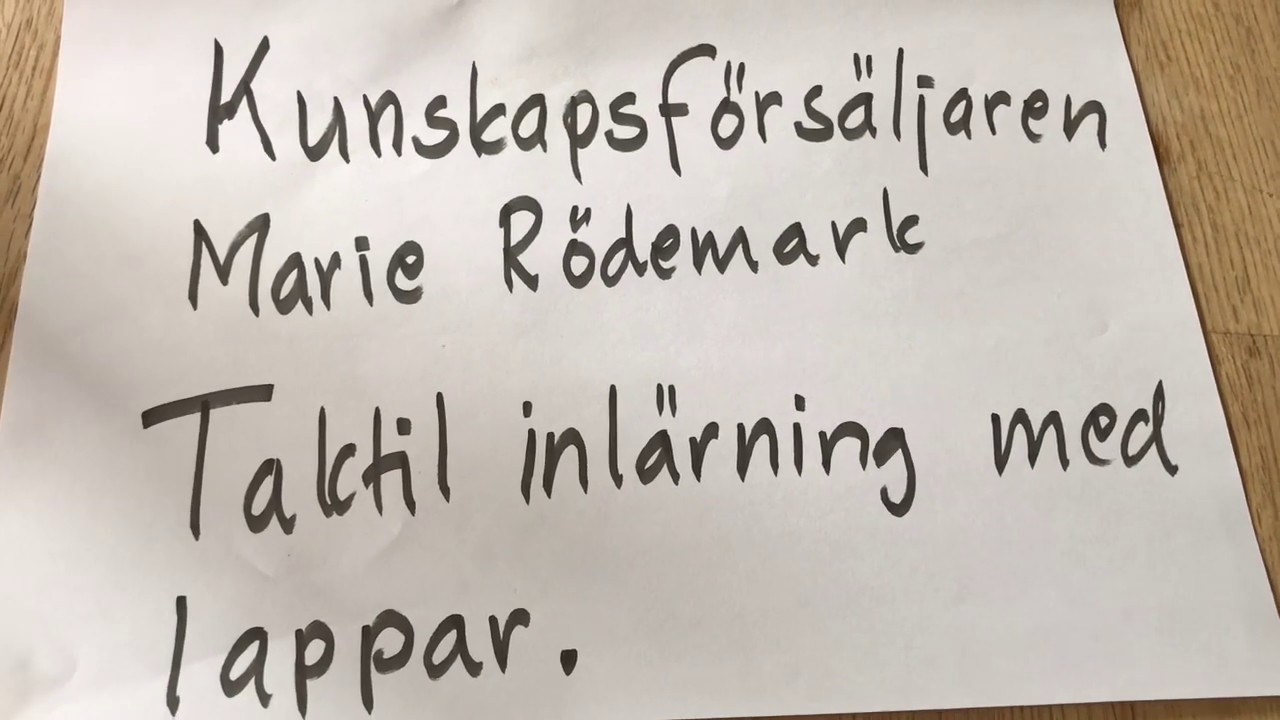 Kunskapsförsäljaren
Marie Rödemark
Taktil inlärning med
lappar.